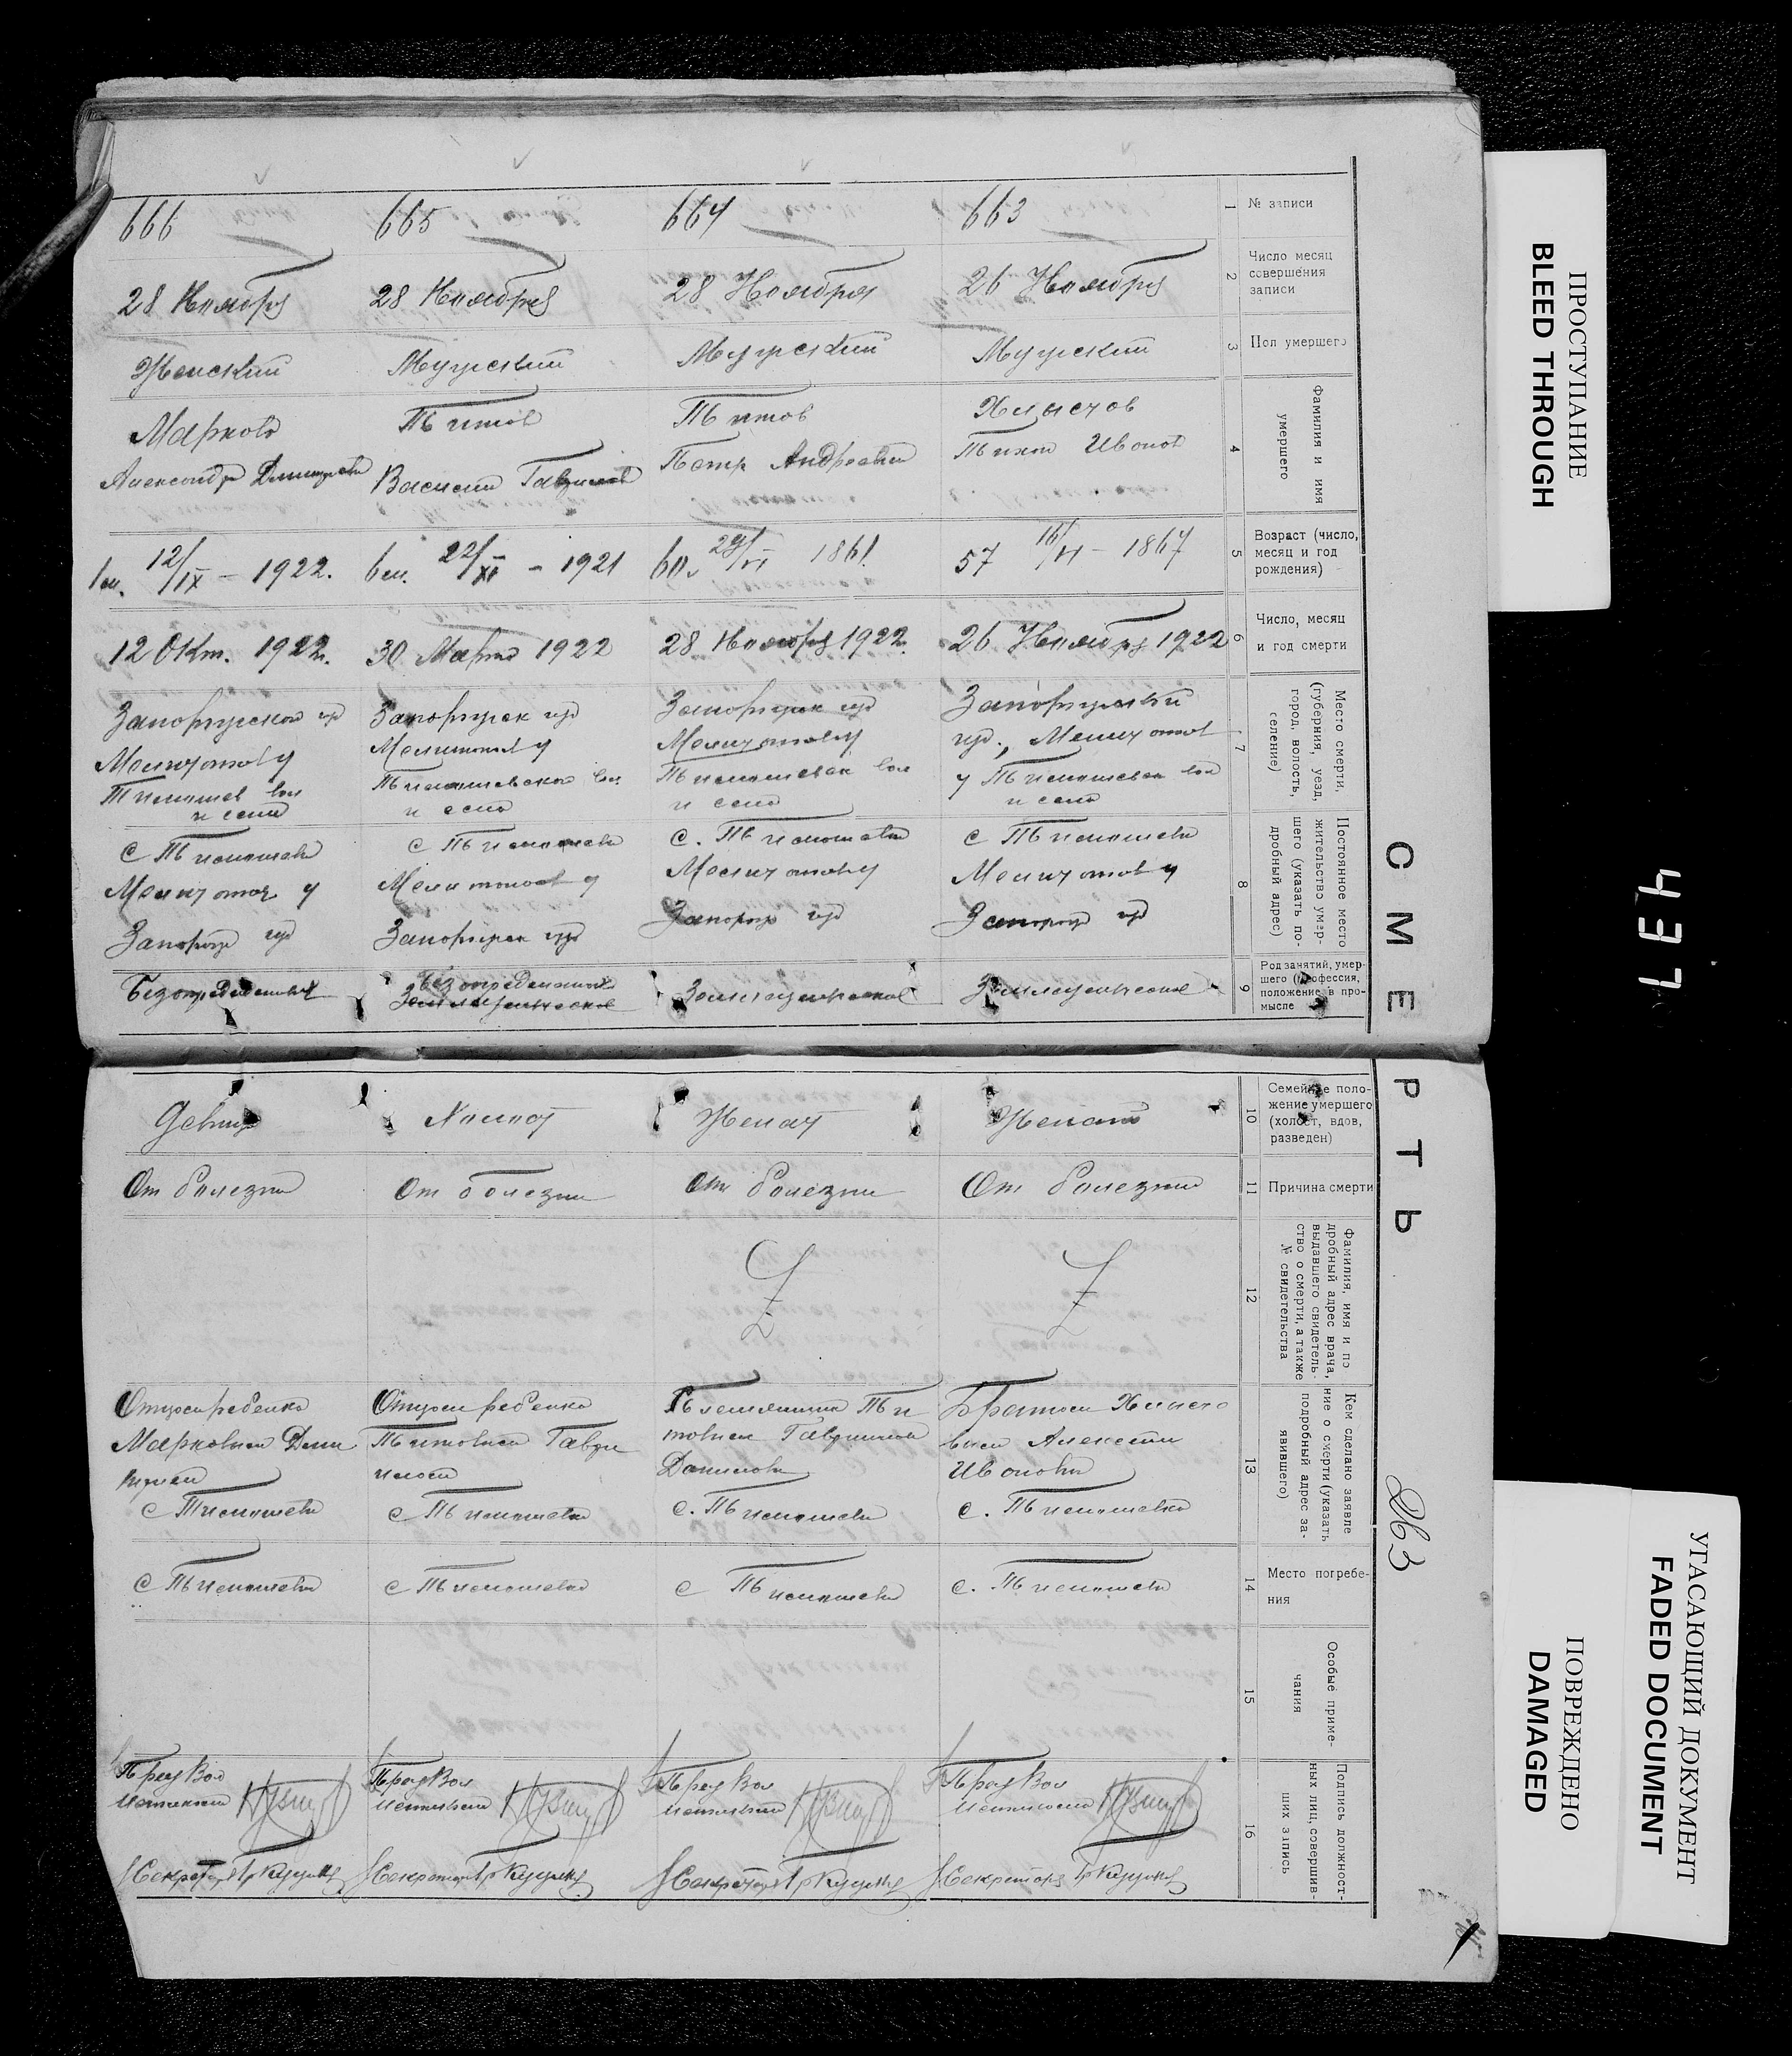 СМЕРТЬ
263
437
ПРОСТУПАНИЕ
BLEED THROUGH
УГАСАЮЩИЙ ДОКУМЕНТ
FADED DOCUMENT
ПОВРЕЖДЕНО
DAMAGED
1
№ записи
2
Число месяц
совершения
записи
3
Пол умершего
4
Фамилия и имя
умершего
5
Возраст (число,
месяц и год
рождения)
6
Число, месяц
и год смерти
7
Место смерти,
(губерния, уезд,
город, волость,
селение)
8
Постоянное место
жительство умер-
шего (указать по-
дробный адрес)
9
Род занятий, умер-
шего (профессия,
положение в про-
мысле
10
Семейное поло-
жение умершего
(холост, вдов,
разведен)
11
Причина смерти
12
Фамилия, имя и по
дробный адрес врача,
выдавшего свидетель-
ство о смерти, а также
№ свидетельства
13
Кем сделано заявле
ние о смерти (указать
подробный адрес за-
явившего)
14
Место погребе-
ния
15
Особые приме-
чания
16
Подпись должност-
ных лиц, совершив-
ших запись
663
26 Ноября
Мужский
Хлыстов
Тихон Иванов
57 16/VI - 1867
26 Ноября 1922
Запорожский
губ., Мелитопол
у Тимошевск вол
и село
с Тимошевка
Мелитопол у
Запорож губ
Земледелческое
Женат
От болезни
Z
Братом Хлысто
вым Алексеем
Ивановым
с. Тимошевка
с. Тимошевка
Пред Вол
Исполкома
Секретарь
664
28 Ноября
Мужский
Титов
Петр Андреевич
60 29/VI 1861
28 Ноября 1922
Запорожск губ
Мелитопол у
Тимошевск вол
и село
с. Тимошевка
Мелитопол у
Запорож губ
Земледелческое
Женат
От болезни
Z
Племянник Ти
товым Гавриилом
с. Тимошевка
с Тимошевка
Пред Вол
Исполкома
Секретарь
665
28 Ноября
Мужский
Титов
Василий Гаврилов
6 м. 22/XI - 1921
30 Марта 1922
Запорожск губ
Мелитопол у
Тимошевской вол.
и село
с Тимошевка
Мелитопол у
Запорожск губ
Безопределенных
Земледелческое
Холост
От болезни
Отцом ребенка
Титовым Гаври
илом
с Тимошевка
с Тимошевка
Пред Вол
Исполкома
Секретарь
666
28 Ноября
Женский
Маркова
Александра Дмитриева
1 м. 12/IX - 1922.
12 Окт. 1922г.
Запорожской губ
Мелитопол у
Тимошев вол
и село
с Тимошевка
Мелитопол у
Запорож губ
Безопределенных
Девица
От болезни
Отцом ребенка
Марковым Дми
трием
с Тимошевка
с Тимошевка
Пред Вол
Исполкома
Секретарь